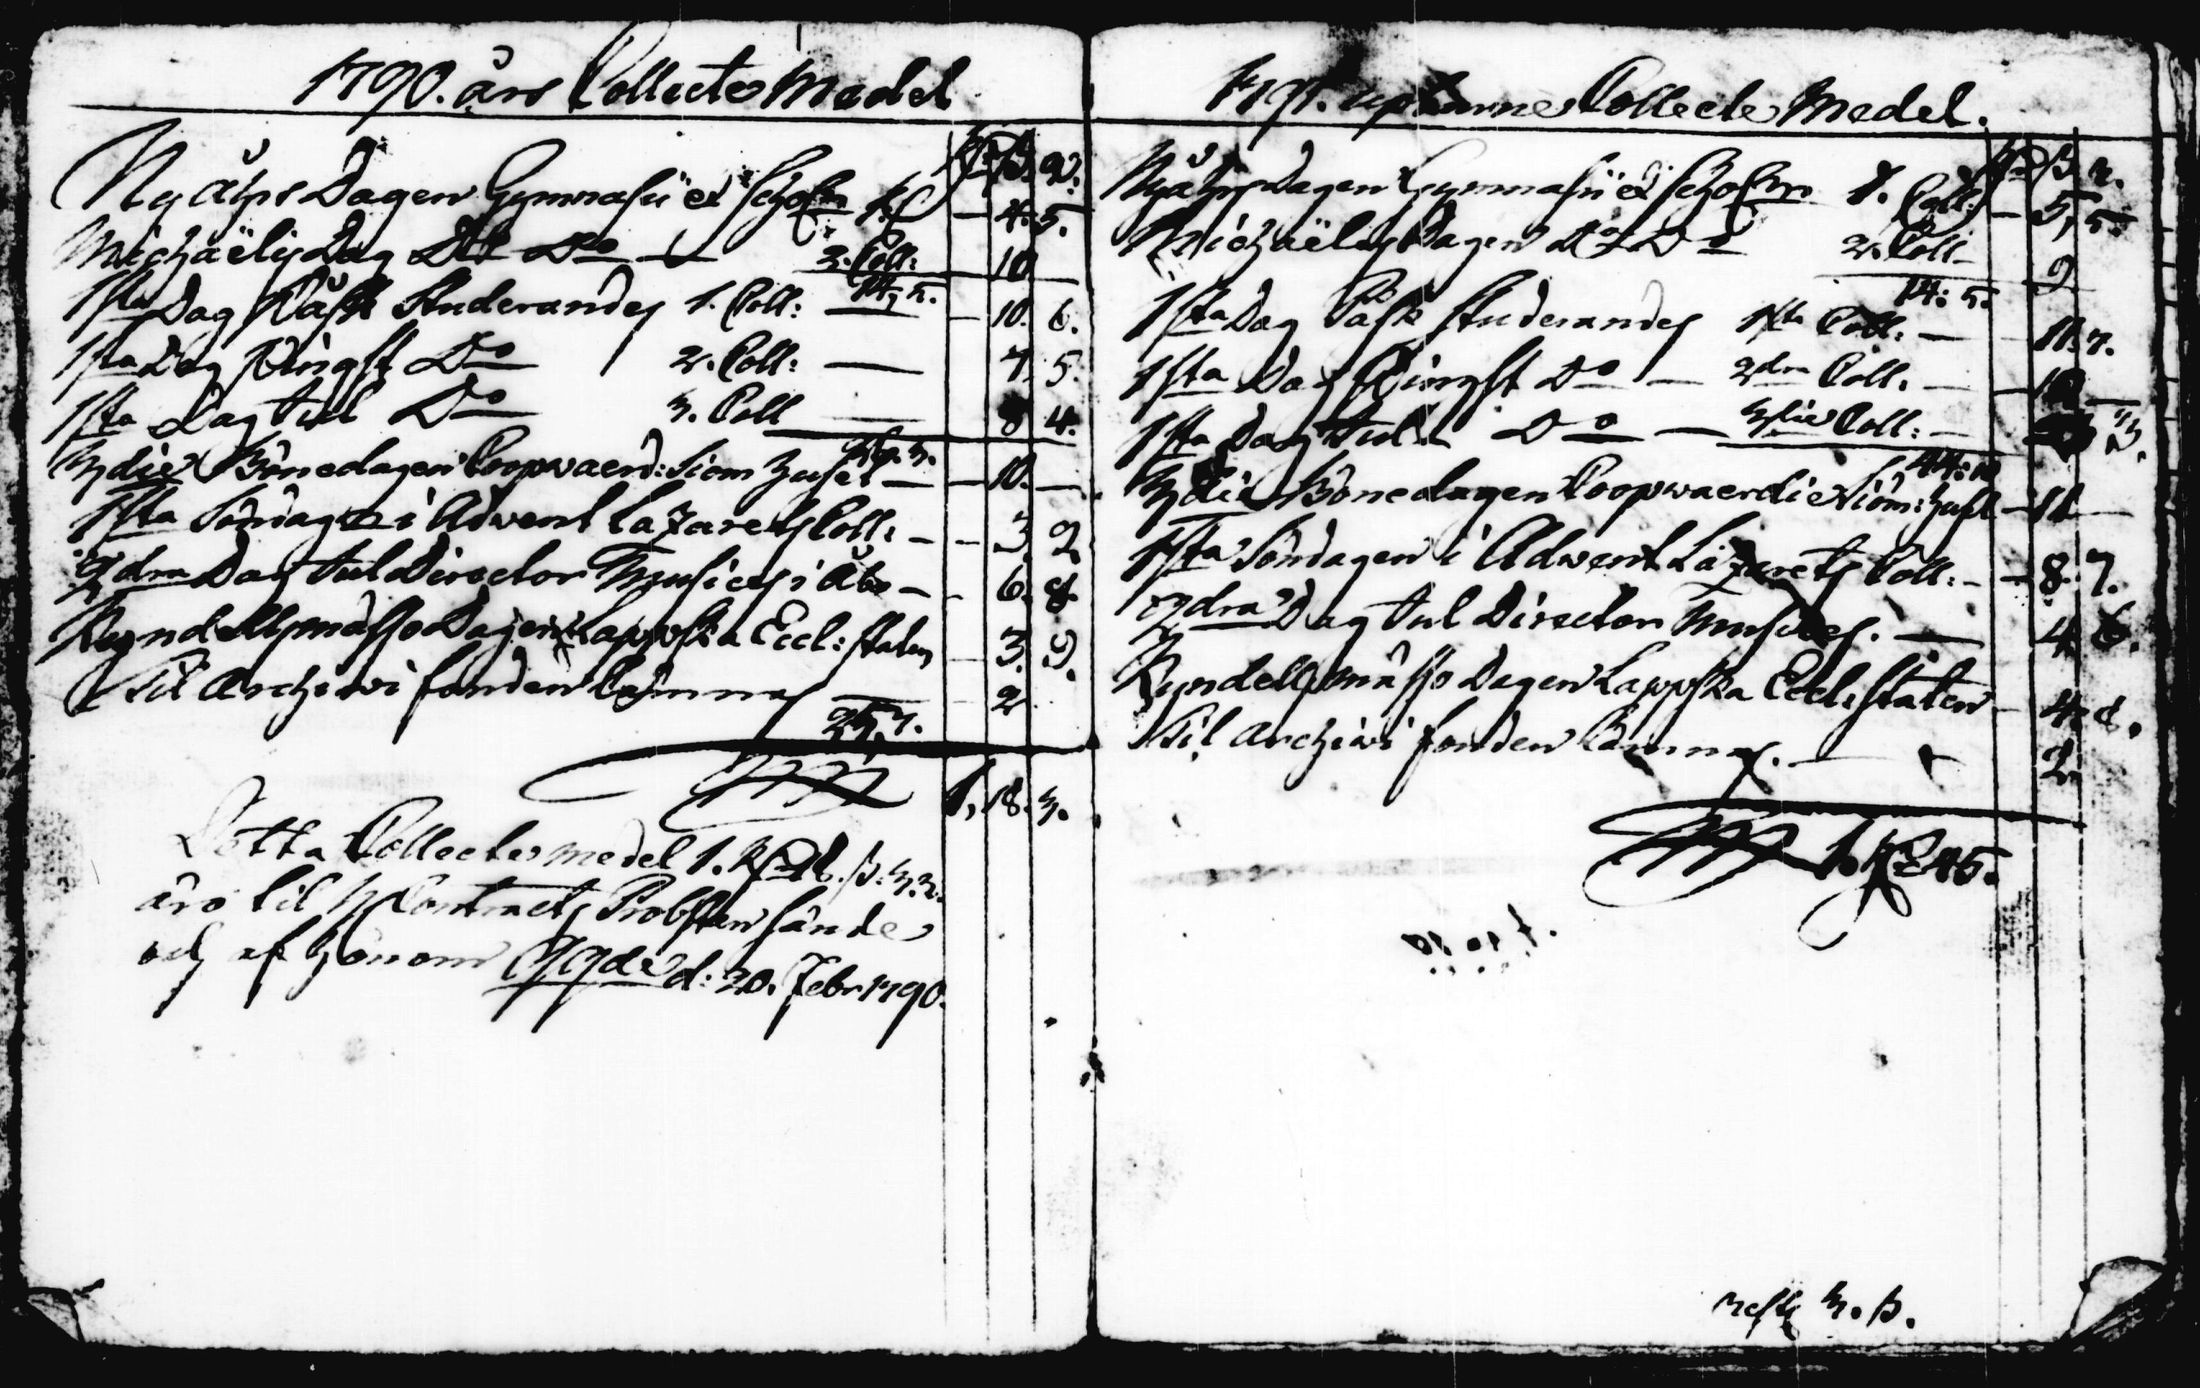 1790. års Collecte Medel
Rd. ß. r.
Nyårs Dagen Gymnasii et Schol: 1. C — 4. 5.
Michaëlis Dag Do Do — 2. Coll: 10 —
14, 5.
1sta Dag Påsk Studerandes 1. Coll: — 10. 6.
1sta Dag Pingst Do 2. Coll: — 7. 5.
1sta Dag Jul Do 3. Coll — 8 4.
26. 3.
3die Bönedagen Coopvaerd: Siöm huset — 10. —
1sta Söndagen i Advent Lazarets Coll: — 3. 2
2dra Dag Jul Director Musices i Åbo — 6. 8
Kyndellsmässo Dagen Lappska Eccl: staten — 3. 9.
Til Archivi fonden lämnas — 2
25. 7.
1, 18. 3.
Detta Collecte medel 1. Rd 18. ß: 3. r.
äro til H Contracts Probsten sände
och af honom qvde d: 20. Febr 1790.
1791. upkomne Collecte Medel.
Rd ß r.
Nyårs Dagen Gymnasii et Schol 1. Coll: — 5, 5.
Michaëlis Dagen Do Do 2. Coll — 9
14: 5.
1sta Dag Påsk Studerandes 1sta Coll: — 11. 7.
1sta Dag Pingst Do — 2dra Coll. —
1sta Dag Jul Do — 3die Coll: — 3.
3die Bönedagen Coopvaerdie Siöm: hus — 11 —
1sta Söndagen i Advent Lazarets Coll: — 8. 7.
2dra Dag Jul Director Musices. — 4 6.
Kyndellsmässo Dagen Lappska Eccl: staten — 4. 8.
Til Archivi fonden lämnas. — 2.
1. Rd 45.
3. ß.